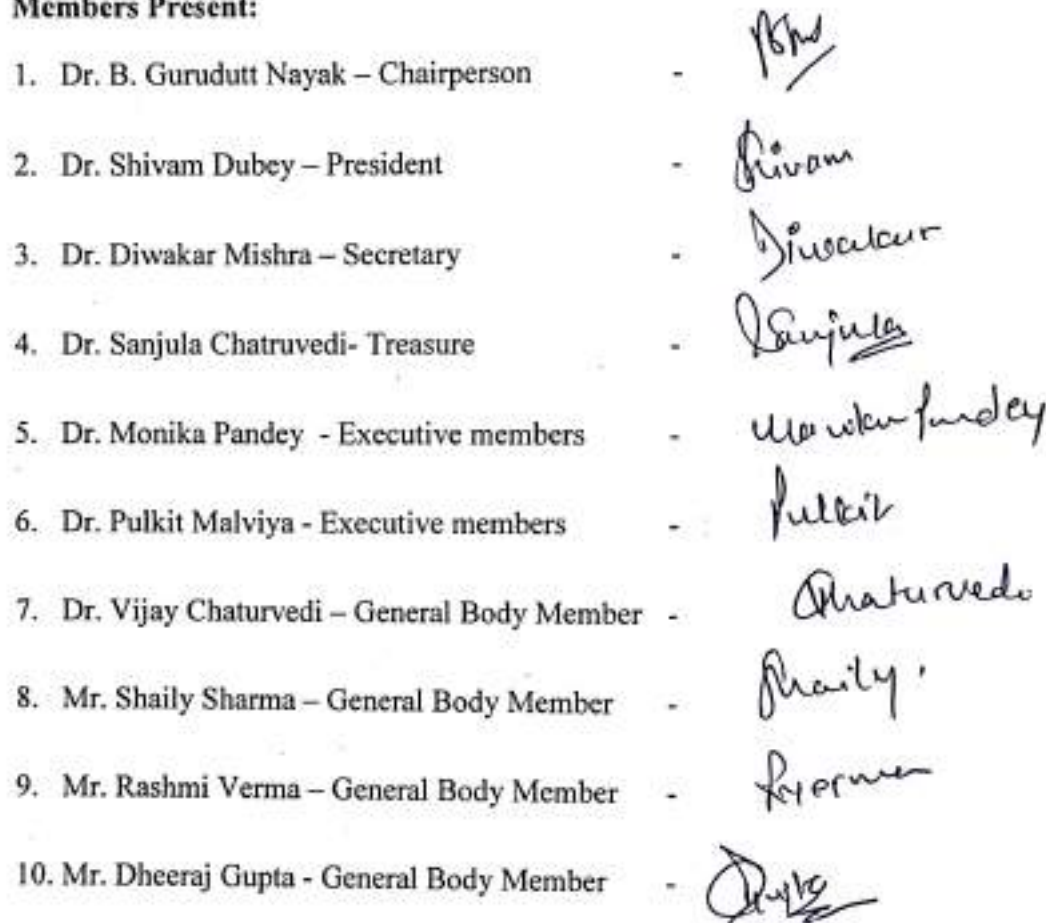 Members Present:
1. Dr. B. Gurudutt Nayak – Chairperson -
2. Dr. Shivam Dubey – President - Shivam
3. Dr. Diwakar Mishra – Secretary - Diwakar
4. Dr. Sanjula Chatruvedi- Treasure - Sanjula
5. Dr. Monika Pandey - Executive members - Monika Pandey
6. Dr. Pulkit Malviya - Executive members - Pulkit
7. Dr. Vijay Chaturvedi – General Body Member - Chaturvedi
8. Mr. Shaily Sharma – General Body Member - Shaily
9. Mr. Rashmi Verma – General Body Member -
10. Mr. Dheeraj Gupta - General Body Member -